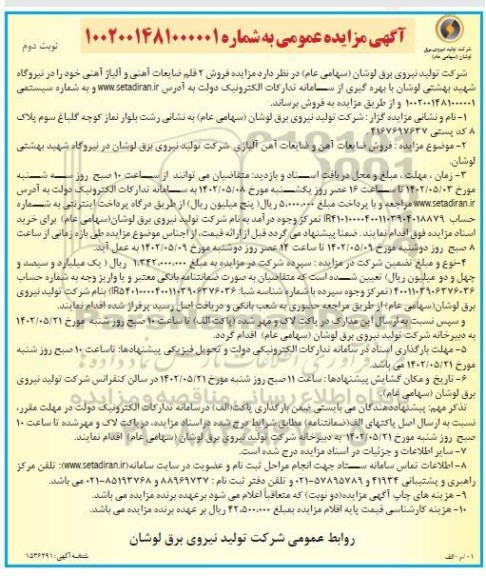 آگهی مزایده عمومی به شماره ۱۰۰۲۰۰۱۴۸۱۰۰۰۰۰۱
نوبت دوم
شرکت تولید نیروی برق
لوشان (سهامی عام)
شرکت تولید نیروی برق لوشان (سهامی عام) در نظر دارد مزایده فروش ۲ قلم ضایعات آهنی و آلیاژ آهنی خود را در نیروگاه
شهید بهشتی لوشان با بهره گیری از سـامانه تدارکات الکترونیک دولت به آدرس www.setadiran.ir و به شماره سیستمی
۱۰۰۲۰۰۱۴۸۱۰۰۰۰۰۱ و از طریق مزایده به فروش برساند.
۱-نام و نشانی مزایده گزار : شرکت تولید نیروی برق لوشان (سهامی عام) به نشانی رشت بلوار نماز کوچه گلباغ سوم پلاک
۸ کد پستی ۴۱۶۷۶۹۷۶۳۷
۲- موضوع مزایده : فروش ضایعات آهن و ضایعات آهن آلیاژی شرکت تولید نیروی برق لوشان در نیروگاه شهید بهشتی
لوشان.
۳- زمان ، مهلت ، مبلغ و محل دریافت اسـناد و بازدید: متقاضیان می توانند از سـاعت ۱۰ صبح روز سـه شـنبه
مورخ ۱۴۰۲/۰۵/۰۳ تا سـاعت ۱۶ عصر روز یکشـنبه مورخ ۱۴۰۲/۰۵/۰۸ به سـامانه تدارکات الکترونیک دولت به آدرس
www.setadiran.ir مراجعه و با پرداخت مبلغ ۵.۰۰۰.۰۰۰ ریال( پنج میلیون ریال) از طریق درگاه پرداخت اینترنتی به شـماره
حساب تمرکز وجوه درآمد به نام شرکت تولید نیروی برق لوشان(سهامی عام) برای خرید
اسناد مزایده فوق اقدام نمایند . ضمنا پیشنهاد می گردد قبل از ارائه قیمت، از اجناس موضوع مزایده طی بازه زمانی از ساعت
۸ صبح روز دوشنبه مورخ ۱۴۰۲/۰۵/۰۹ تا ساعت ۱۴ عصر روز دوشنبه مورخ ۱۴۰۲/۰۵/۰۹ به عمل آید.
۴-نوع و مبلغ تضمین شرکت در مزایده : سپرده شرکت در مزایده به مبلغ ۱.۳۴۲.۰۰۰.۰۰۰ ریال ( یک میلیارد و سیصد و
چهل و دو میلیون ریال) تعیین شـده است که متقاضیان به صورت ضمانتنامه بانکی معتبر و یا واریز وجه به شماره حساب
۴۰۰۱۱۰۳۹۰۶۳۷۶۰۳۶ (تمرکز وجوه سپرده با شماره شبا: ) بنام شرکت تولید نیروی
برق لوشان(سهامی عام) از طریق مراجعه حضوری به شعب بانکی و دریافت اصل رسید پرفراژ شده اقدام نمایند.
و سپس نسبت به ارسال این مدارک در پاکت لاک و مهر شده (پاکت الف) تا ساعت ۱۰ صبح روز شنبه مورخ ۱۴۰۲/۰۵/۲۱
به دبیرخانه شرکت تولید نیروی برق لوشان (سهامی عام) اقدام گردد.
۵- مهلت بارگذاری اسناد در سامانه تدارکات الکترونیکی دولت و تحویل فیزیکی پیشنهادها: تاساعت ۱۰ صبح روز شنبه
مورخ ۱۴۰۲/۰۵/۲۱ می باشد.
۶- تاریخ و مکان گشایش پیشنهادها : ساعت ۱۱ صبح روز شنبه مورخ ۱۴۰۲/۰۵/۲۱ در سالن کنفرانس شرکت تولید نیروی
برق لوشان (سهامی عام).
تذکر مهم: پیشنهاددهندگان می بایستی ضمن بارگذاری پاکت(الف) درسامانه تدارکات الکترونیک دولت در مهلت مقرر،
نسبت به ارسال اصل پاکتهای الف(ضمانتنامه) مطابق شرایط درج شده در اسناد مزایده، درپاکت لاک و مهرشده تا ساعت ۱۰
صبح روز شنبه مورخ ۱۴۰۲/۰۵/۲۱ به دبیرخانه شرکت تولید نیروی برق لوشان (سهامی عام) اقدام نمایند.
۷- سایر اطلاعات و جزئیات در اسناد مزایده درج شده است.
۸- اطلاعات تماس سامانه ستاد جهت انجام مراحل ثبت نام و عضویت در سایت سامانه(www.setadiran.ir): تلفن مرکز
راهبری و پشتیبانی ۴۱۹۳۴ و ۵۷۸۹۵۷۸۹-۰۲۱ و تلفن دفتر ثبت نام : ۸۸۹۶۹۷۳۷ و ۸۵۱۹۳۷۶۸-۰۲۱ می باشد.
۹- هزینه های چاپ آگهی مزایده(دو نوبت) که متعاقباً اعلام می شود برعهده برنده مزایده می باشد.
۱۰- هزینه کارشناسی قیمت پایه اقلام مزایده بمبلغ ۴۲.۵۰۰.۰۰۰ ریال بر عهده برنده مزایده می باشد.
روابط عمومی شرکت تولید نیروی برق لوشان
۰۱/م-الف
شناسه آگهی: ۱۵۳۶۲۹۱